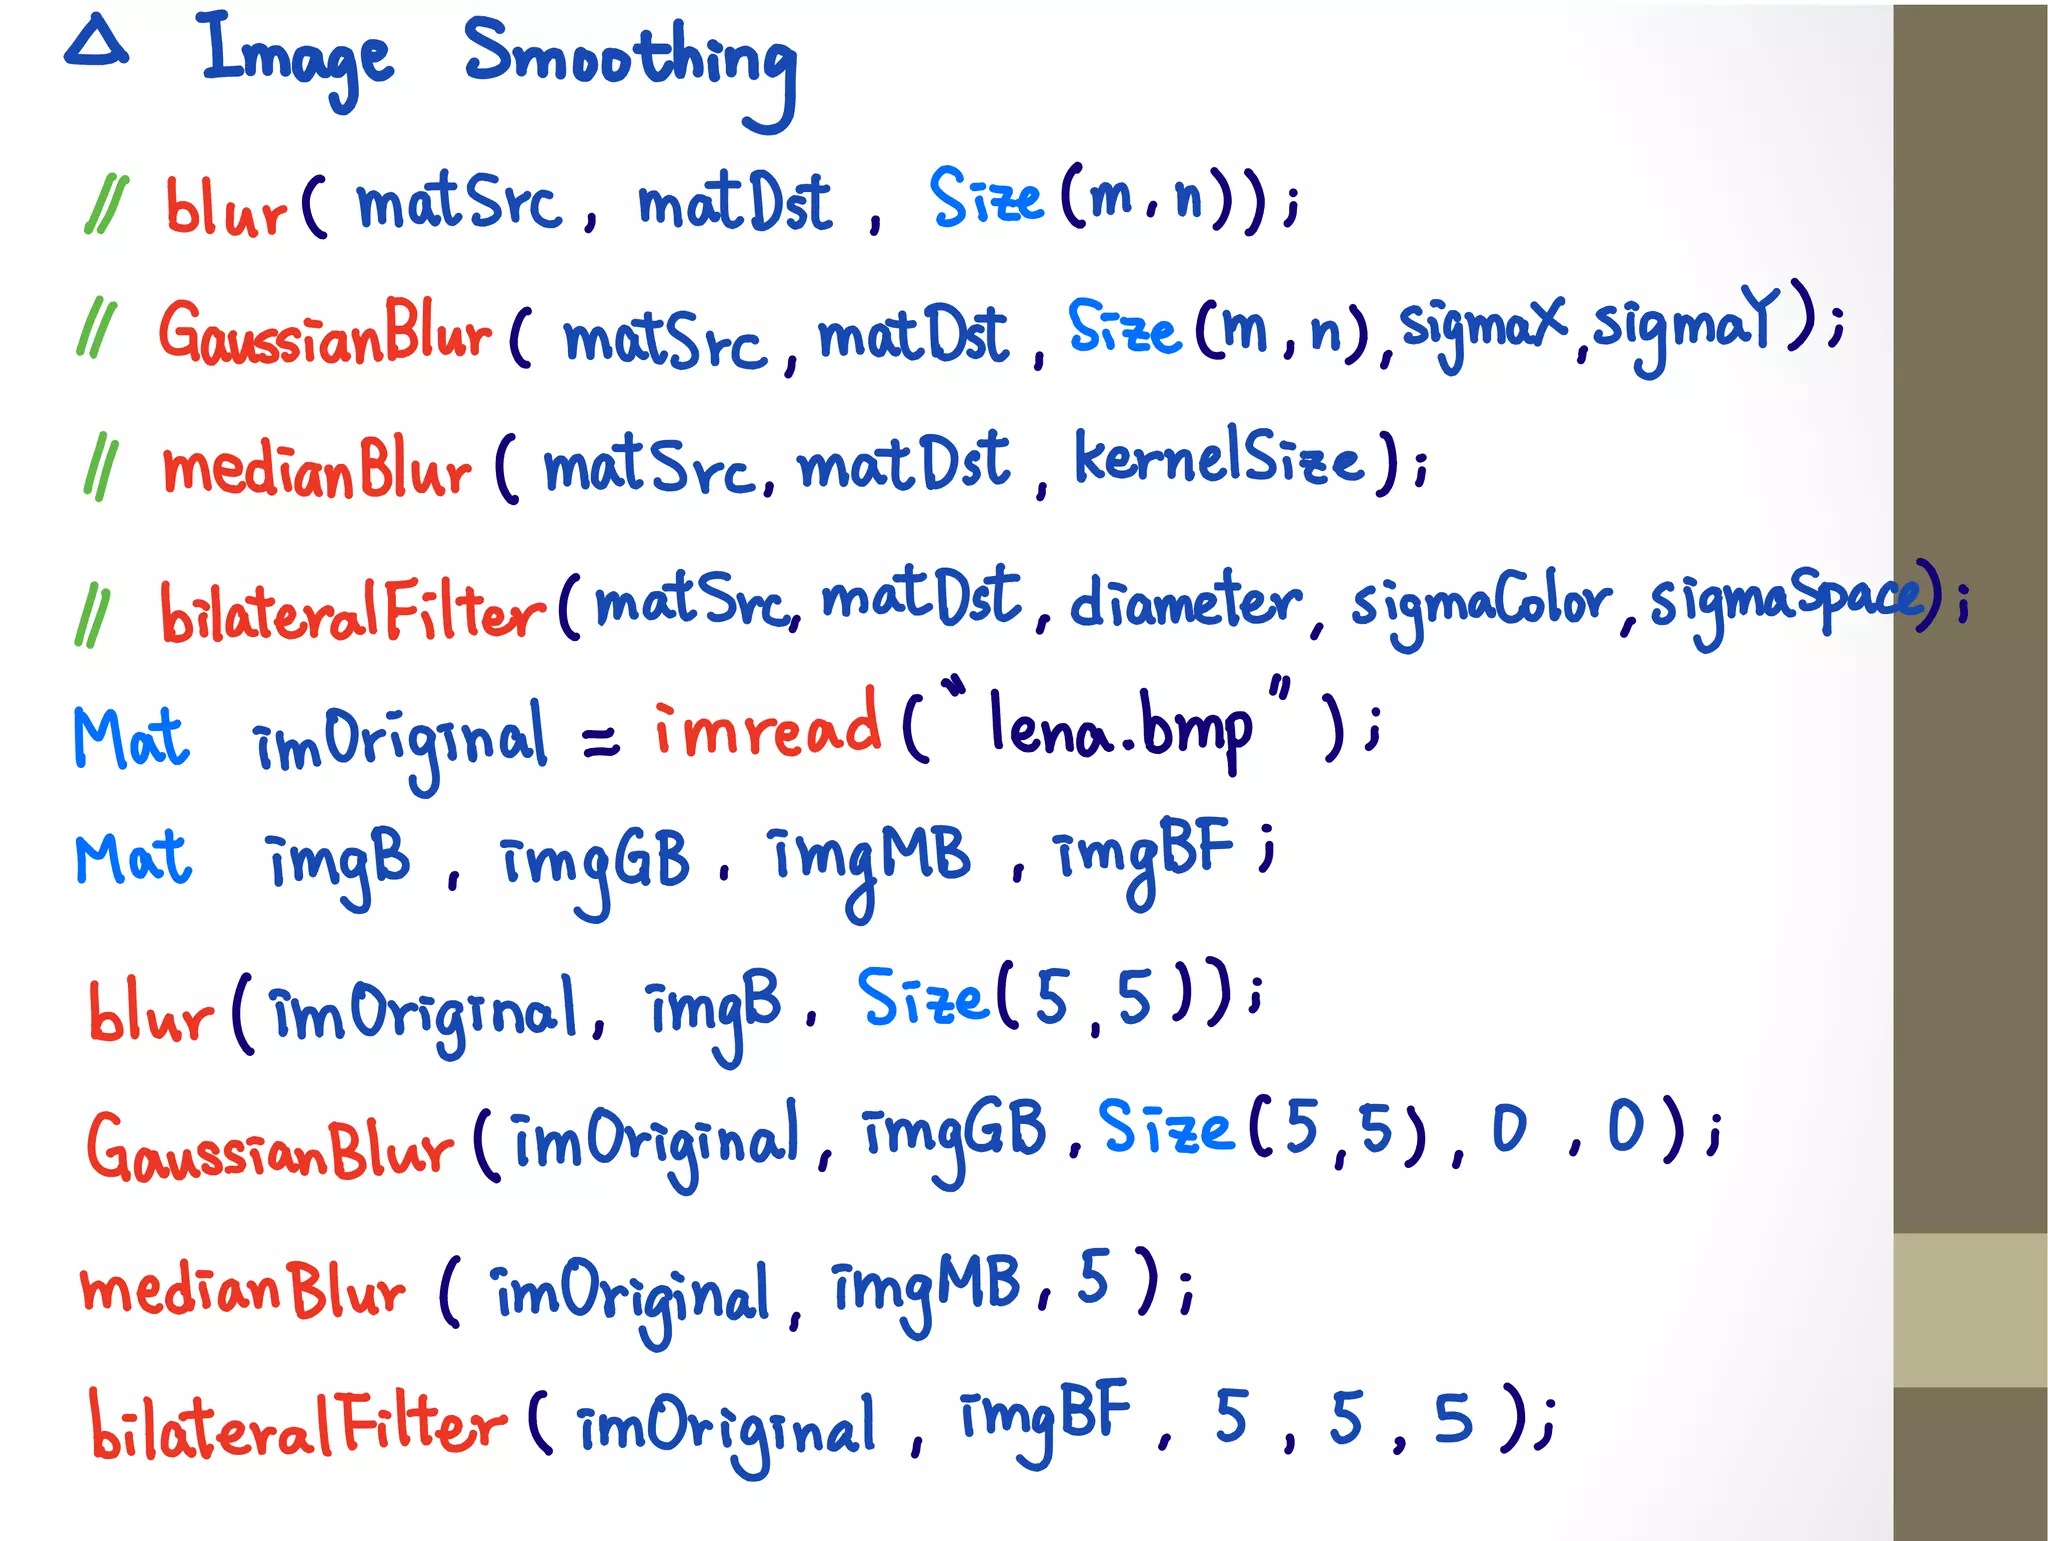 △ Image Smoothing
// blur( matSrc, matDst, Size(m,n));
// GaussianBlur( matSrc, matDst, Size(m,n), sigmaX, sigmaY);
// medianBlur( matSrc, matDst, kernelSize);
// bilateralFilter( matSrc, matDst, diameter, sigmaColor, sigmaSpace);
Mat imOriginal = imread("lena.bmp");
Mat imgB, imgGB, imgMB, imgBF;
blur(imOriginal, imgB, Size(5,5));
GaussianBlur(imOriginal, imgGB, Size(5,5), 0, 0);
medianBlur( imOriginal, imgMB, 5);
bilateralFilter( imOriginal, imgBF, 5, 5, 5);